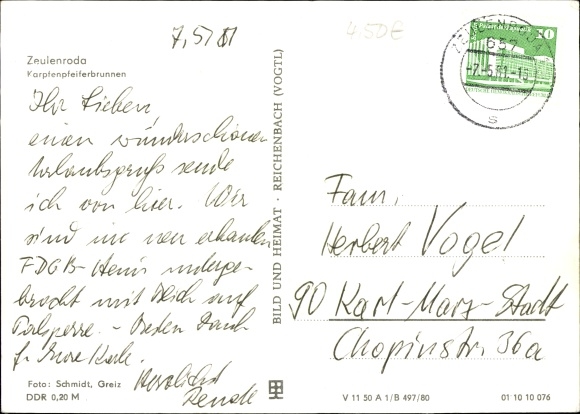 7.5.81
4.50€
Zeulenroda
Karpfenpfeiferbrunnen
Ihr Lieben,
einen wunderschönen
Urlaubsgruß sende
ich von hier. Wir
sind im neu erbauten
FDGB-Heim unterge-
bracht mit Blick auf
Talsperre. - Vielen Dank
f. Eure Karte.
Herzlichst
Renate
Foto: Schmidt, Greiz
DDR 0,20 M
BILD UND HEIMAT · REICHENBACH (VOGTL)
ZEULENRODA
657
-7.-5.81.-15
S
10
Fam.
Herbert Vogel
90 Karl-Marx-Stadt
Chopinstr. 36a
V 11 50 A 1/B 497/80
01 10 10 076